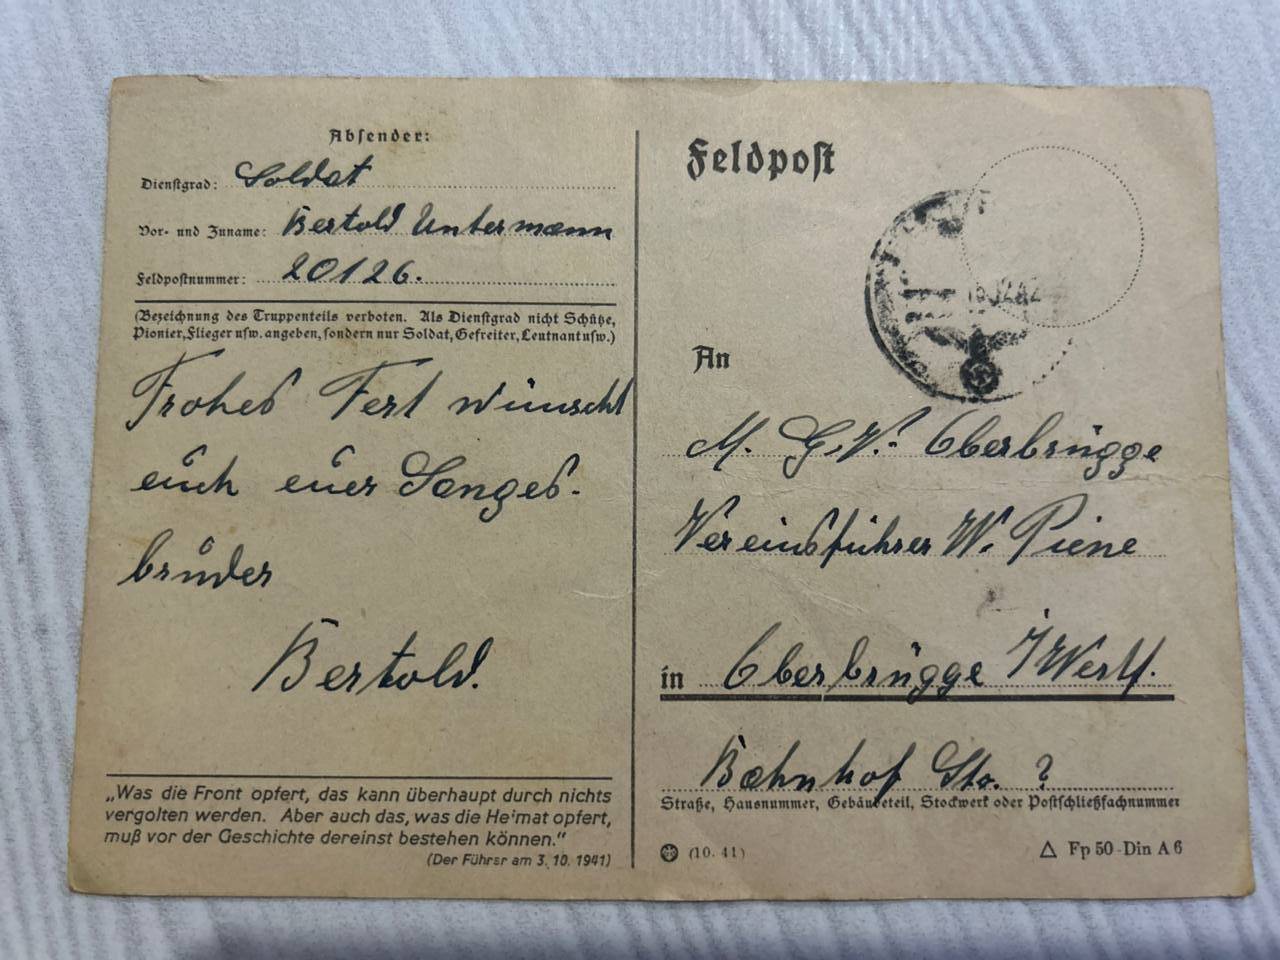 Absender:
Dienstgrad: Soldat
Vor- und Zuname: Bertold Untermann
Feldpostnummer: 20126.
(Bezeichnung des Truppenteils verboten. Als Dienstgrad nicht Schütze,
Pionier, Flieger usw. angeben, sondern nur Soldat, Gefreiter, Leutnant usw.)
Frohes Fest wünscht
euch euer Sanges-
bruder
Bertold.
„Was die Front opfert, das kann überhaupt durch nichts
vergolten werden. Aber auch das, was die He'mat opfert,
muß vor der Geschichte dereinst bestehen können."
(Der Führsr am 3. 10. 1941)
Feldpost
An
M. G. V. Oberbrügge
Vereinsführer W. Piene
in Oberbrügge i/Westf.
Bahnhof Str. ?
Straße, Hausnummer, Gebäudeteil, Stockwerk oder Postschließfachnummer
(10. 41)
Fp 50 Din A 6